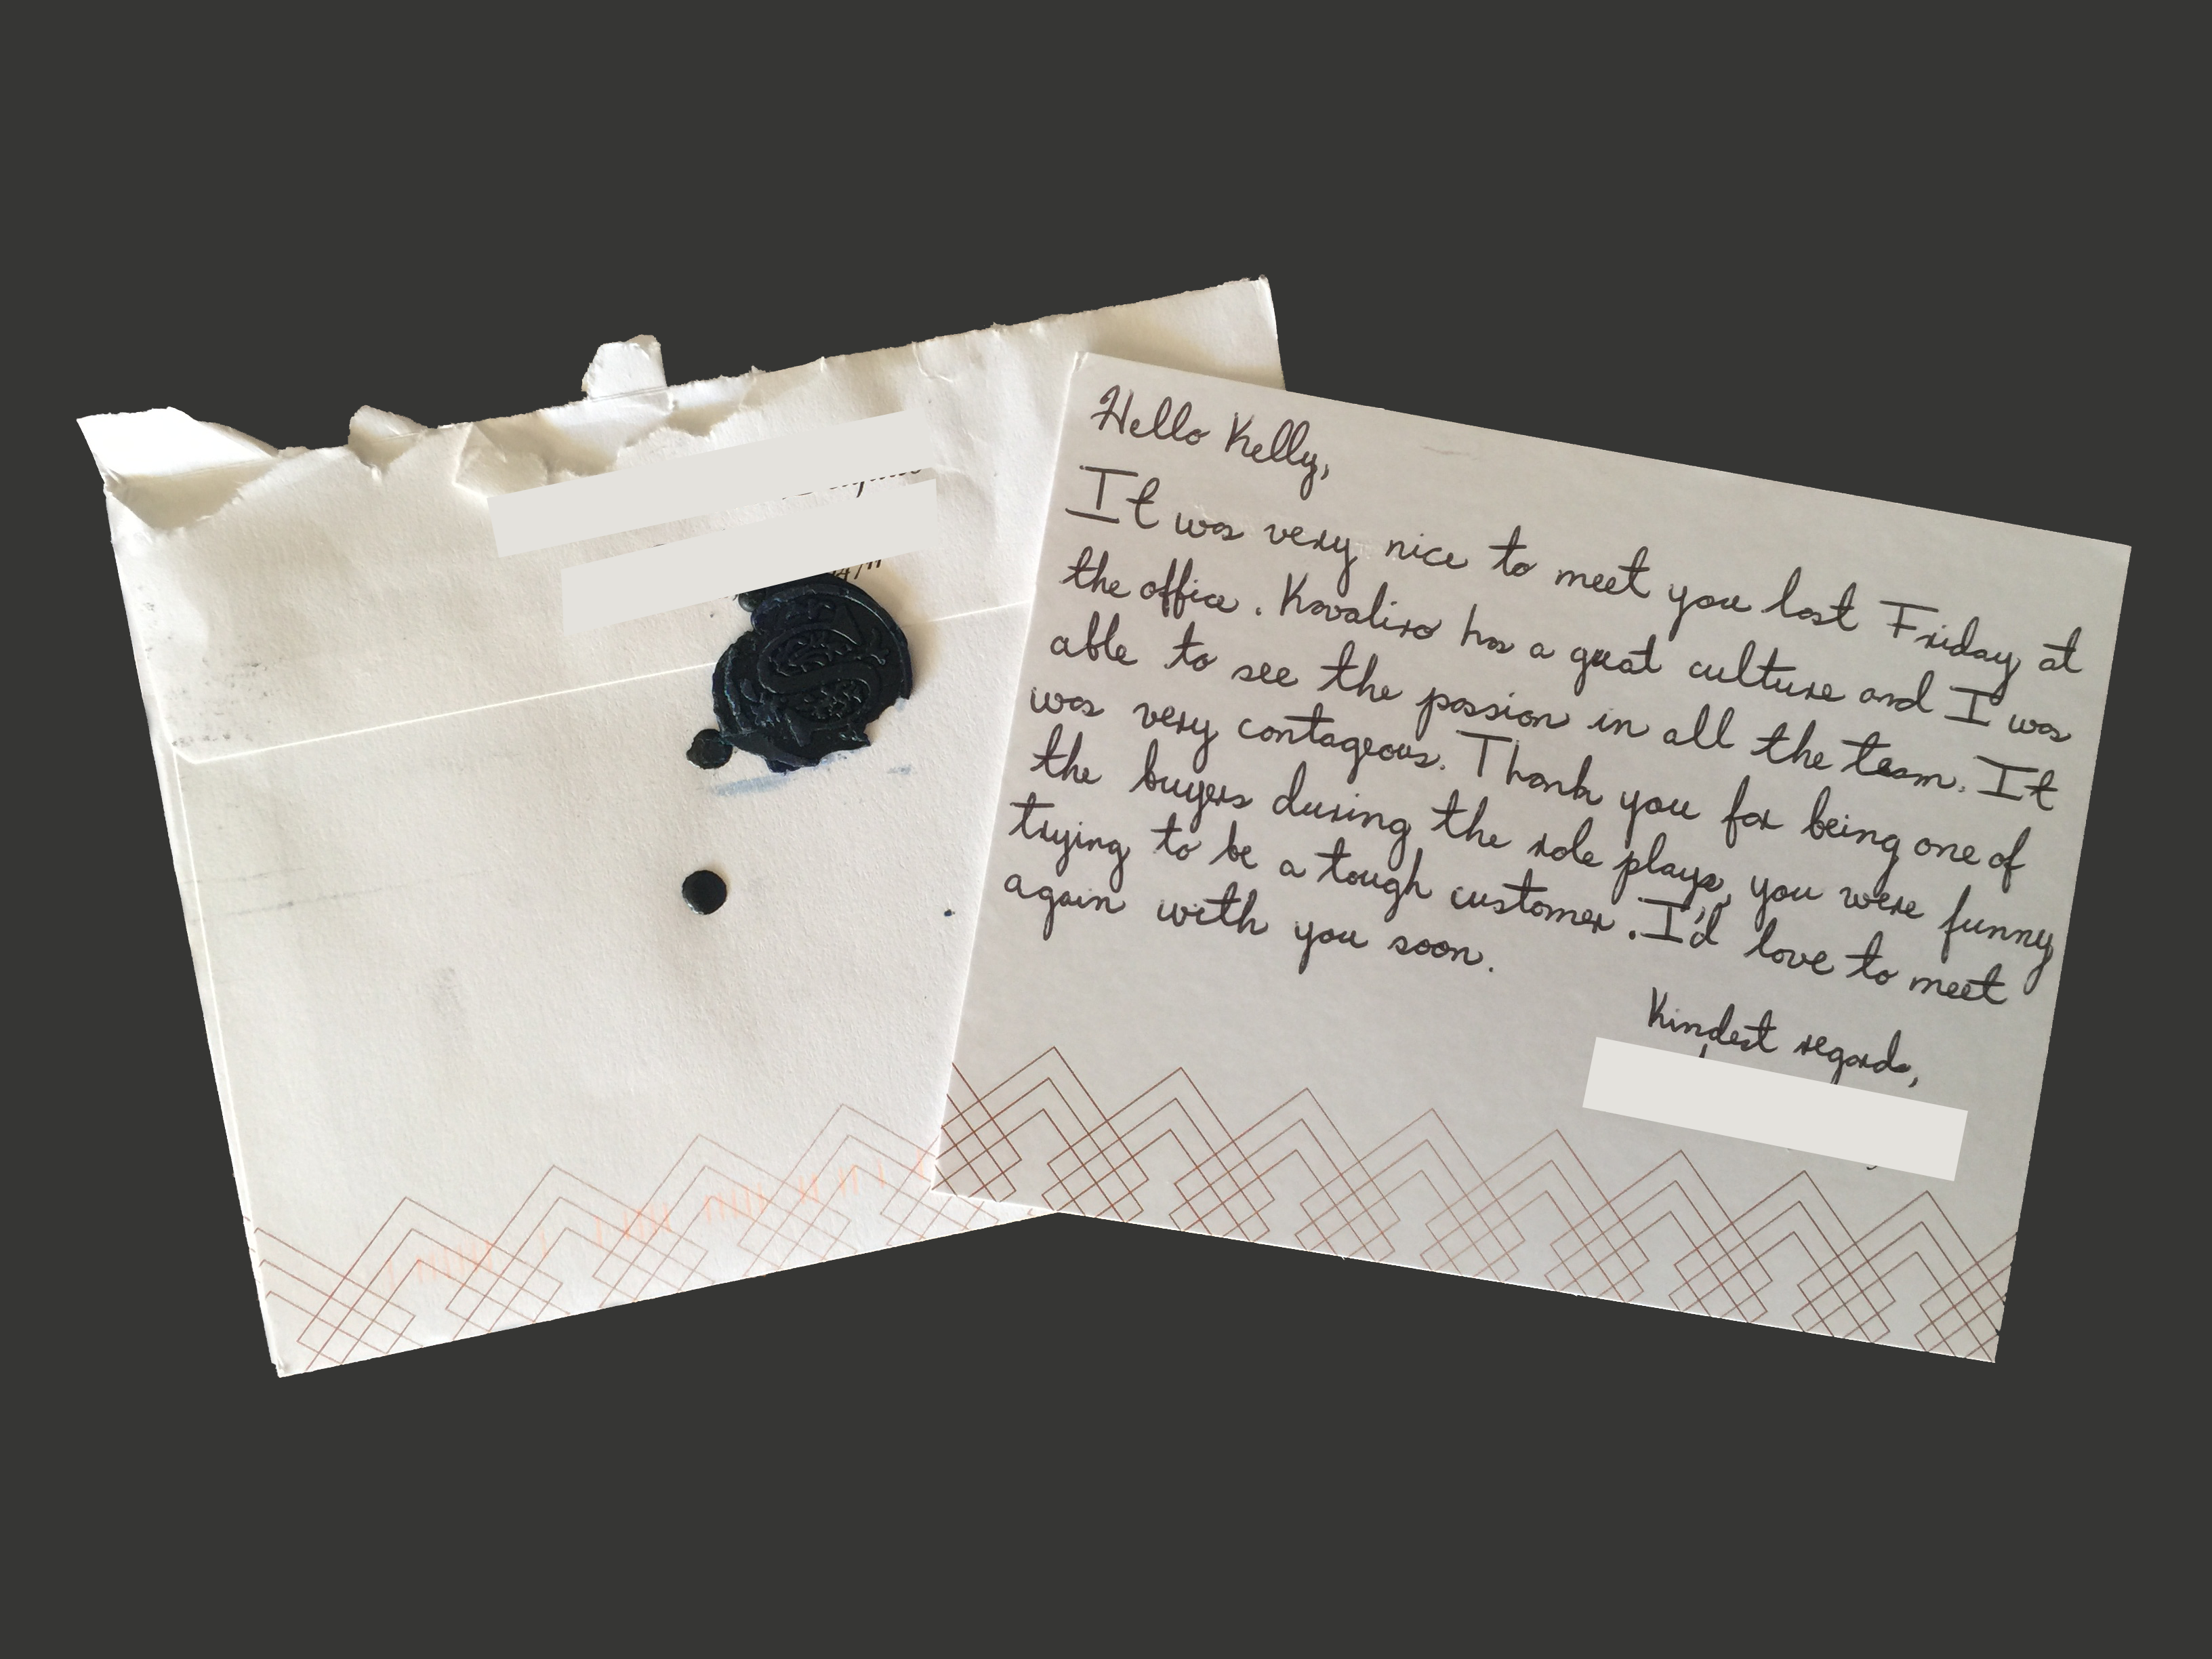 Hello Kelly,
It was very nice to meet you last Friday at
the office. Kavaliro has a great culture and I was
able to see the passion in all the team. It
was very contageous. Thank you for being one of
the buyers during the role plays, you were funny
trying to be a tough customer. I'd love to meet
again with you soon.
Kindest regards,